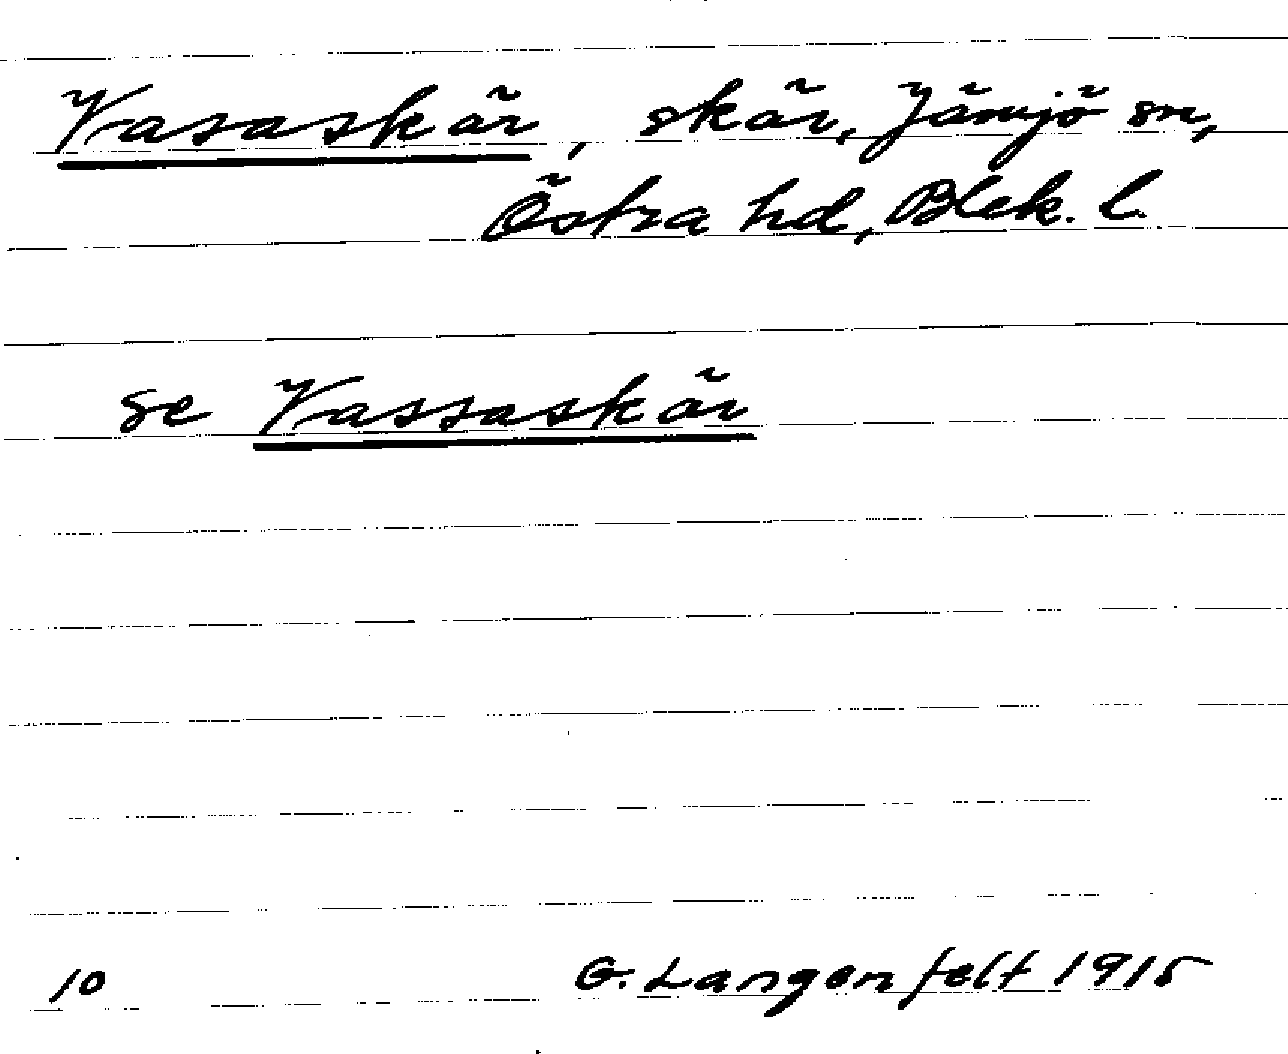 Vasaskär, skär, Jämjö sn,
Östra hd, Blek. l.
se Vassaskär
10 G. Langenfelt 1915